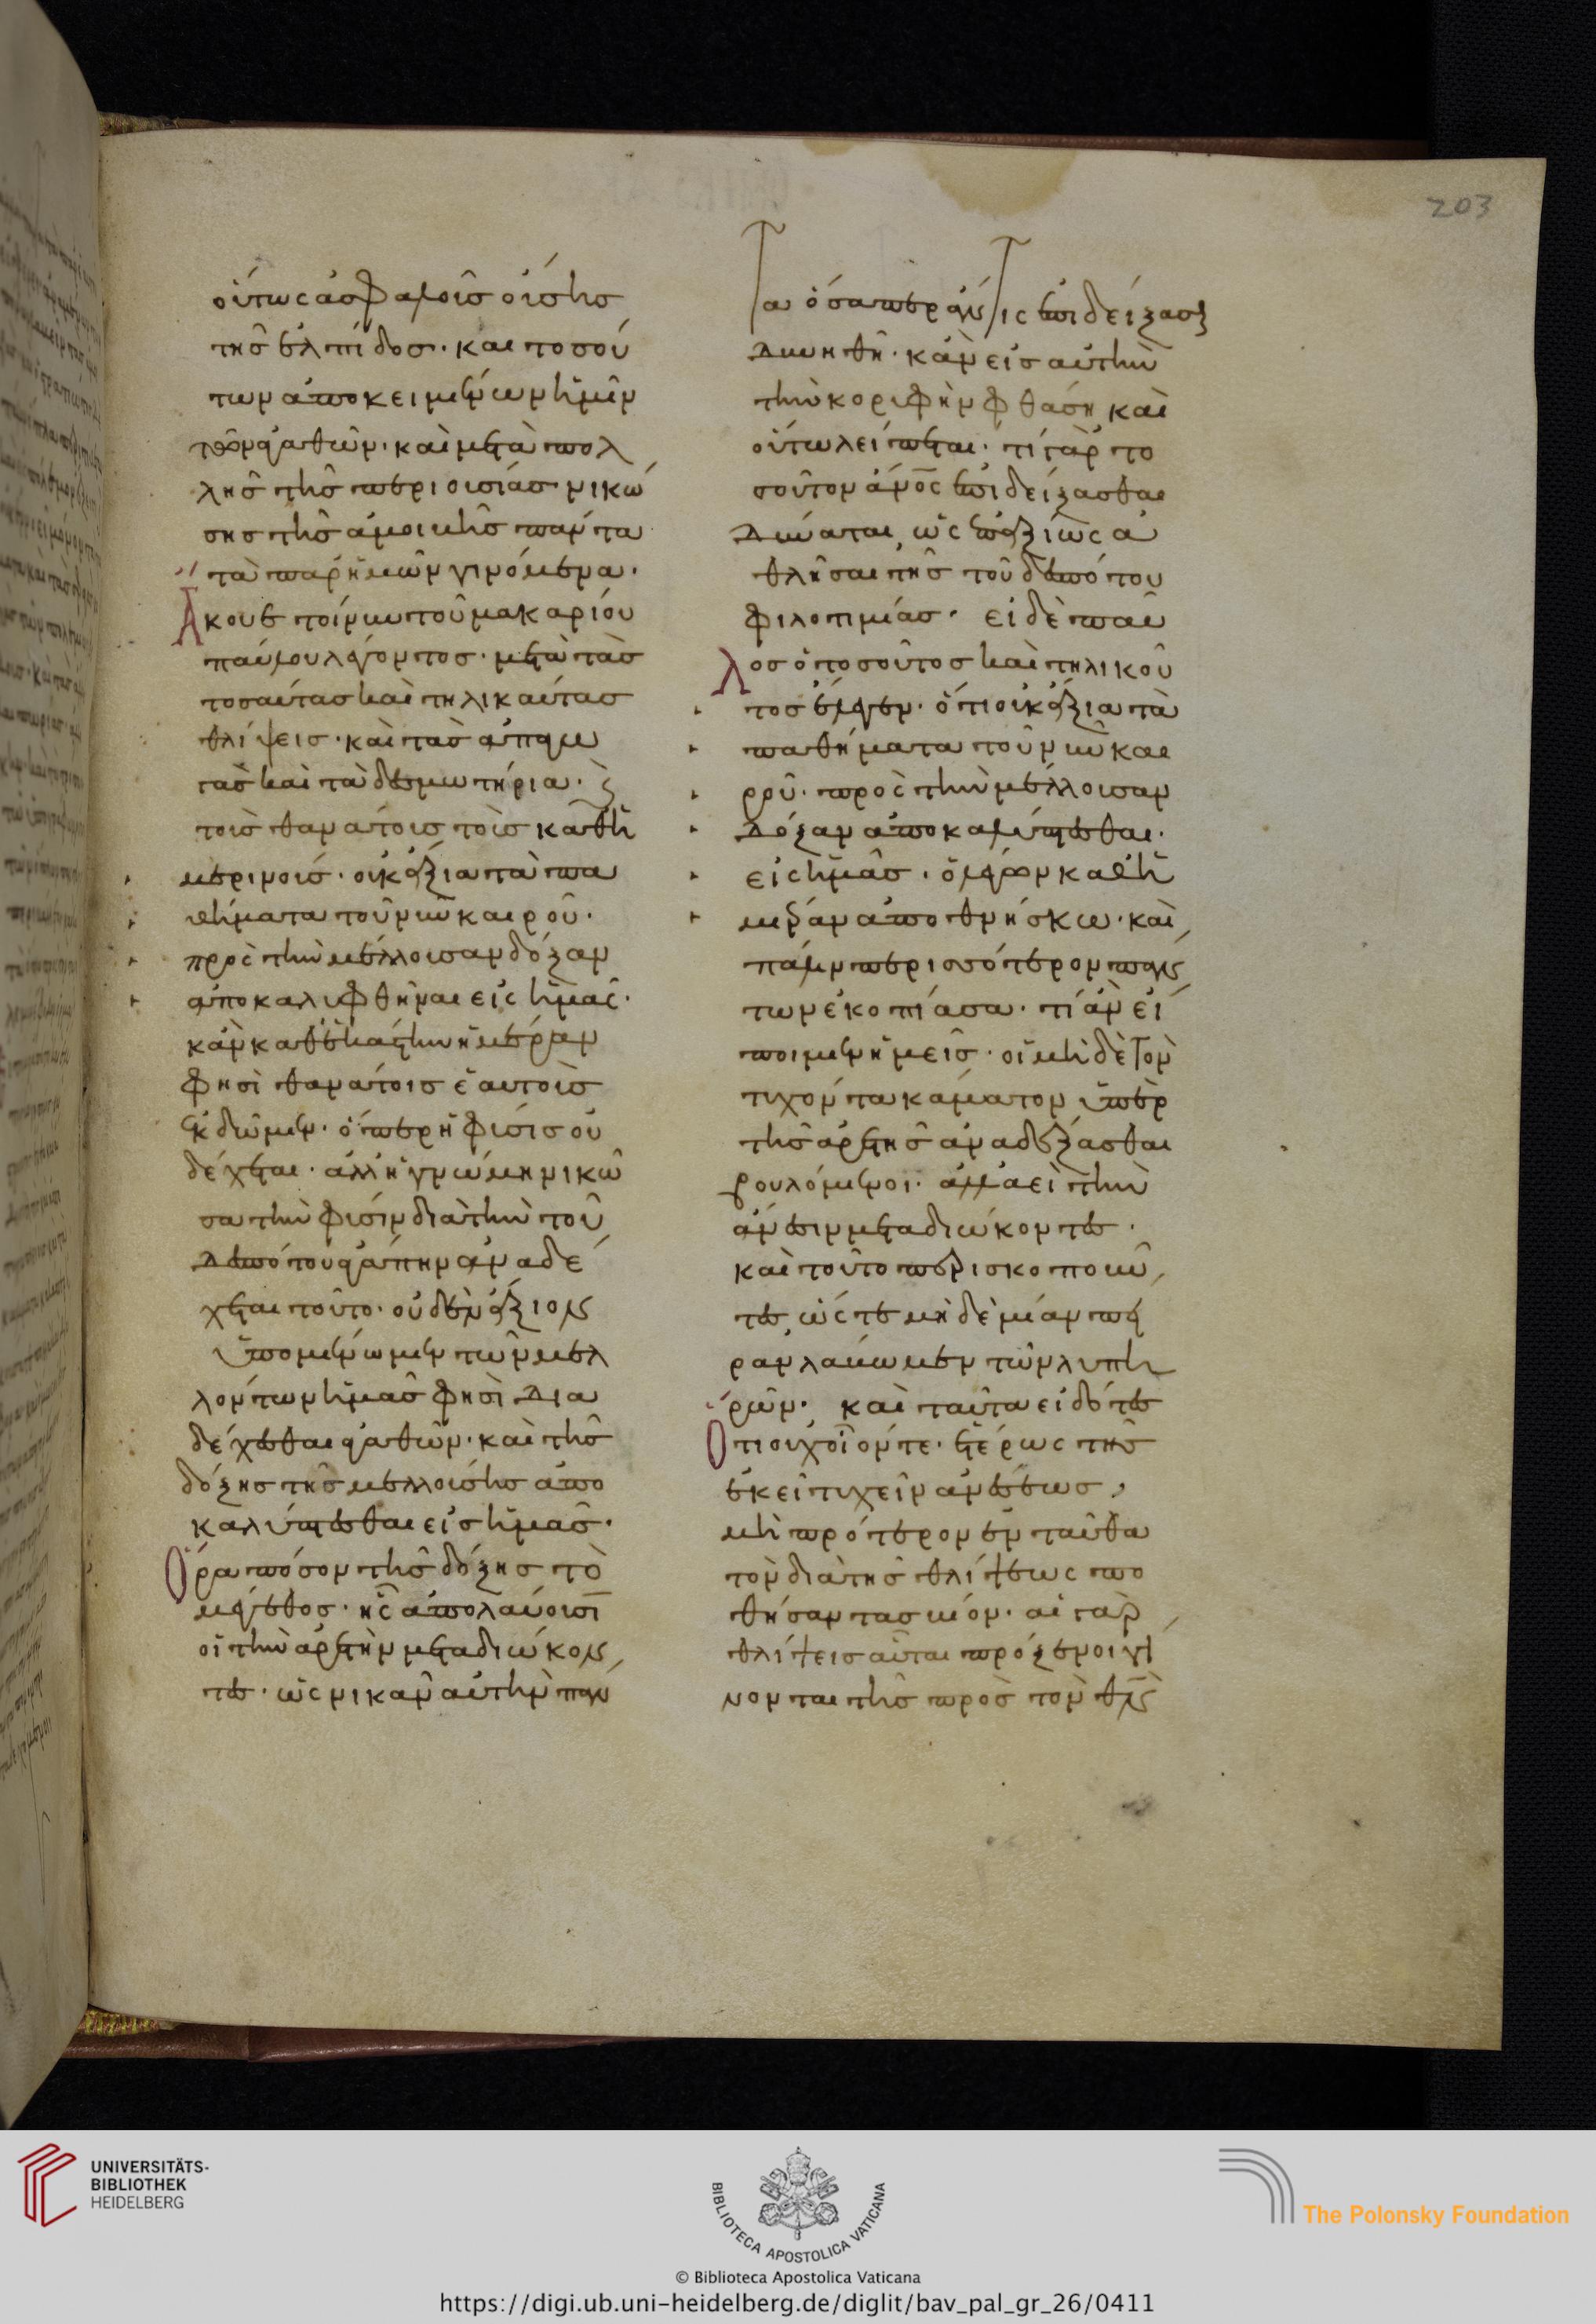 203
οὕτως ἀσφαλοῦς οὔσης
τῆς ἐλπίδος· καὶ τοσού
των ἀποκειμένων ἡμῖν
τῶν ἀγαθῶν· καὶ μετὰ πολ
λῆς τῆς περιουσίας νικώ
σης τῆς ἀμοιβῆς πάντα
τὰ παρ' ἡμῶν γινόμενα·
Ἄκουε τοίνυν τοῦ μακαρίου
παύλου λέγοντος· μετὰ τὰς
τοσαύτας καὶ τηλικαύτας
θλίψεις· καὶ τὰς ἀπαγω
γὰς καὶ τὰ δεσμωτήρια· καὶ
τοὺς θανάτους τοὺς καθη
μερινούς· οὐκ ἄξια τὰ πα
θήματα τοῦ νῦν καιροῦ·
πρὸς τὴν μέλλουσαν δόξαν
ἀποκαλυφθῆναι εἰς ἡμᾶς·
κἂν καθ' ἑκάστην ἡμέραν
φησὶ θανάτοις ἑαυτοὺς
ἐκδῶμεν· ὅπερ ἡ φύσις οὐ
δέχεται· ἀλλ' ἡ γνώμη νικῶ
σα τὴν φύσιν διὰ τὴν τοῦ
δεσπότου ἀγάπην ἀναδέ
χεται τοῦτο· οὐδὲν ἄξιον
ὑπομένωμεν τῶν μελ
λόντων ἡμᾶς φησὶ δια
δέχεσθαι ἀγαθῶν· καὶ τῆς
δόξης τῆς μελλούσης ἀπο
καλύπτεσθαι εἰς ἡμᾶς·
Ὅρα πόσον τῆς δόξης τὸ
μέγεθος· ἧς ἀπολαύουσιν
οἱ τὴν ἀρετὴν μεταδιώκον
τες· ὡς νικᾶν αὐτὴν παν
τα ὅσαπερ ἄν τις ἐπιδείξασθαι
δυνηθῆ· κἂν εἰς αὐτὴν
τὴν κορυφὴν φθάση καὶ
οὕτω λείπεται· τί γὰρ το
σοῦτον ἄνος ἐπιδείξασθαι
δύναται, ὡς ἐπαξίως ἀ
θλῆσαι τῆς τοῦ δεσπότου
φιλοτιμίας· εἰ δὲ παῦ
λος ὁ τοσοῦτος καὶ τηλικοῦ
τος ἔλεγεν· ὅτι οὐκ ἄξια τὰ
παθήματα τοῦ νῦν και
ροῦ· πρὸς τὴν μέλλουσαν
δόξαν ἀποκαλύπτεσθαι·
εἰς ἡμᾶς· ὁ λέγων καθ' ἡ
μέραν ἀποθνήσκω· καὶ
πάλιν περισσότερον πάν
των ἐκοπίασα· τί ἂν εἴ
ποιμεν ἡμεῖς· οἱ μηδὲ τὸν
τυχόντα κάματον ὑπὲρ
τῆς ἀρετῆς ἀναδέξασθαι
βουλόμενοι· ἀλλ' ἀεὶ τὴν
ἄνεσιν μεταδιώκοντες·
καὶ τοῦτο περισκοποῦν
τες, ὥστε μηδεμίαν πεῖ
ραν λαύωμεν τῶν λυπη
ρῶν· καὶ ταῦτα εἰδότες
Ὅτι οὐχ οἷόν τε· ἑτέρως τῆς
ἐκεῖ τυχεῖν ἀνέσεως,
μὴ πρότερον ἐνταῦθα
τὸν διὰ τῆς θλίψεως πο
θήσαντας βίον· αἱ γὰρ
θλίψεις αὗται πρόξενοι γί
νονται τῆς πρὸς τὸν θν
UNIVERSITÄTS-
BIBLIOTHEK
HEIDELBERG
BIBLIOTECA APOSTOLICA VATICANA
The Polonsky Foundation
© Biblioteca Apostolica Vaticana
https://digi.ub.uni-heidelberg.de/diglit/bav_pal_gr_26/0411